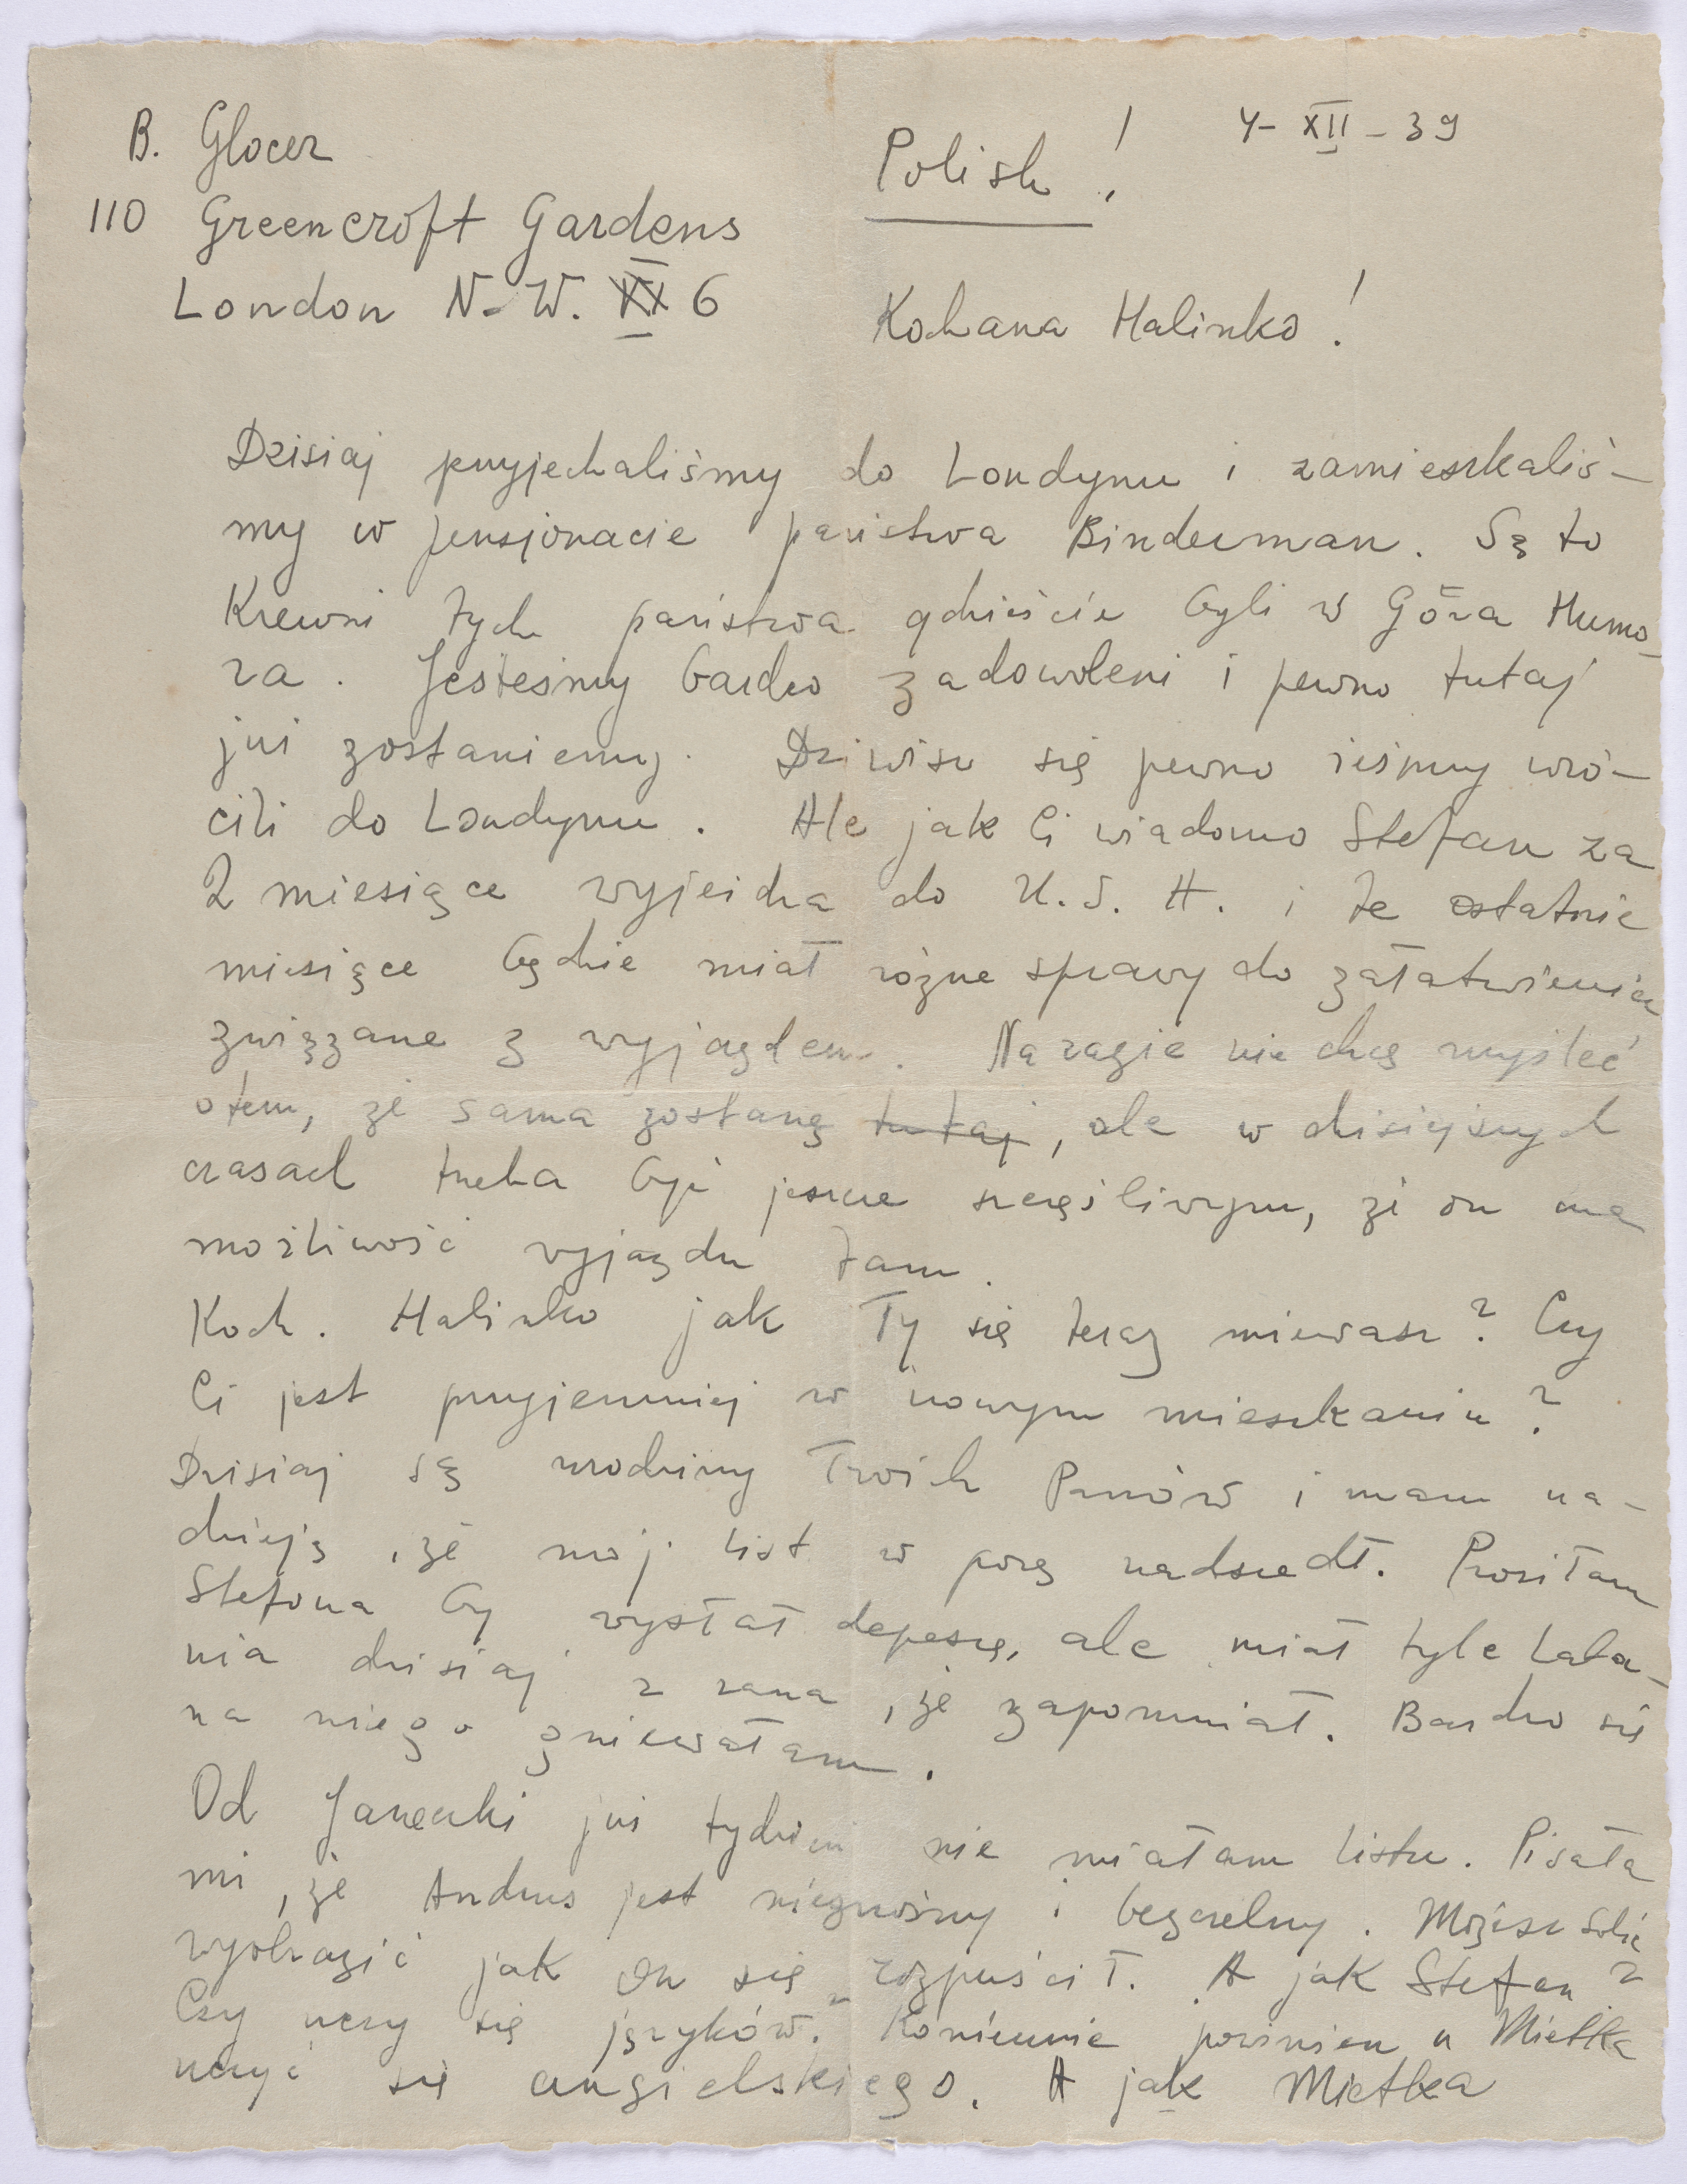 B. Glocer
110 Greencroft Gardens
London N.W. 6
Polish!
4-XII-39
Kochana Halinko!
Dzisiaj przyjechaliśmy do Londynu i zamieszkaliś-
my w pensjonacie państwa Binderman. Są to
Krewni tych państwa gdzieście byli w Góra Humo-
ra. Jesteśmy bardzo zadowoleni i pewno tutaj
już zostaniemy. Dziwisz się pewno żeśmy wró-
cili do Londynu. Ale jak Ci wiadomo Stefan za
2 miesiące wyjeżdża do U.S.A. i te ostatnie
miesiące będzie miał różne sprawy do załatwienia
związane z wyjazdem. Narazie nie chcę myśleć
otem, że sama zostanę tutaj, ale w dzisiejszych
czasach trzeba być jeszcze szczęśliwym, że on ma
możliwość wyjazdu tam.
Koch. Halinko jak Ty się teraz miewasz? Czy
Ci jest przyjemniej w nowym mieszkaniu?
Dzisiaj są urodziny Twoich Panów i mam na-
dzieję, że mój list w porę nadszedł. Prosiłam
Stefana by wysłał depeszę, ale miał tyle lata-
nia dzisiaj z rana, że zapomniał. Bardzo się
na niego gniewałam.
Od Janeczki już tydzień nie miałam listu. Pisała
mi, że Andrus jest nieznośny i bezczelny. Możesz sobie
wyobrazić jak on się rozpuścił. A jak Stefan?
Czy uczy się języków? Koniecznie powinien u Mietka
uczyć się angielskiego. A jak Mietka